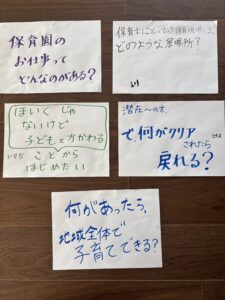 保育園の
お仕事って
どんなのがある？
保育士にとっての
どのような居場所？
ほいくじゃ
ないけど
子どもとかかわる
ことから
はじめたい
潜在〜の方、
で、何がクリア
されたら
戻れる？
何があったら、
地域全体で
子育てできる？